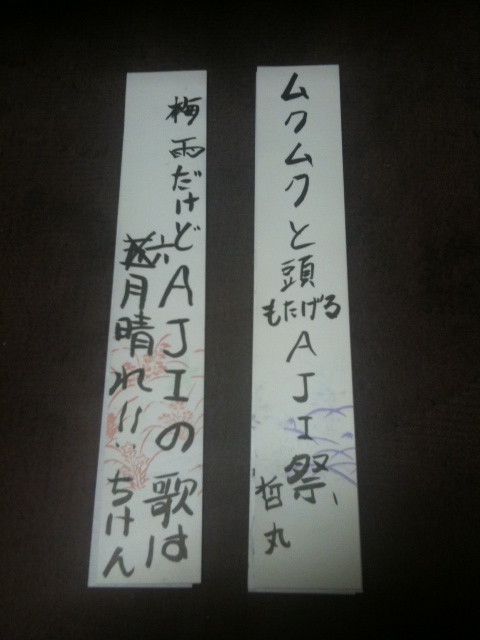 ムクムクと頭
もたげる
AJI祭
哲丸
梅雨だけどAJIの歌は
六月晴れ!!
ちけん